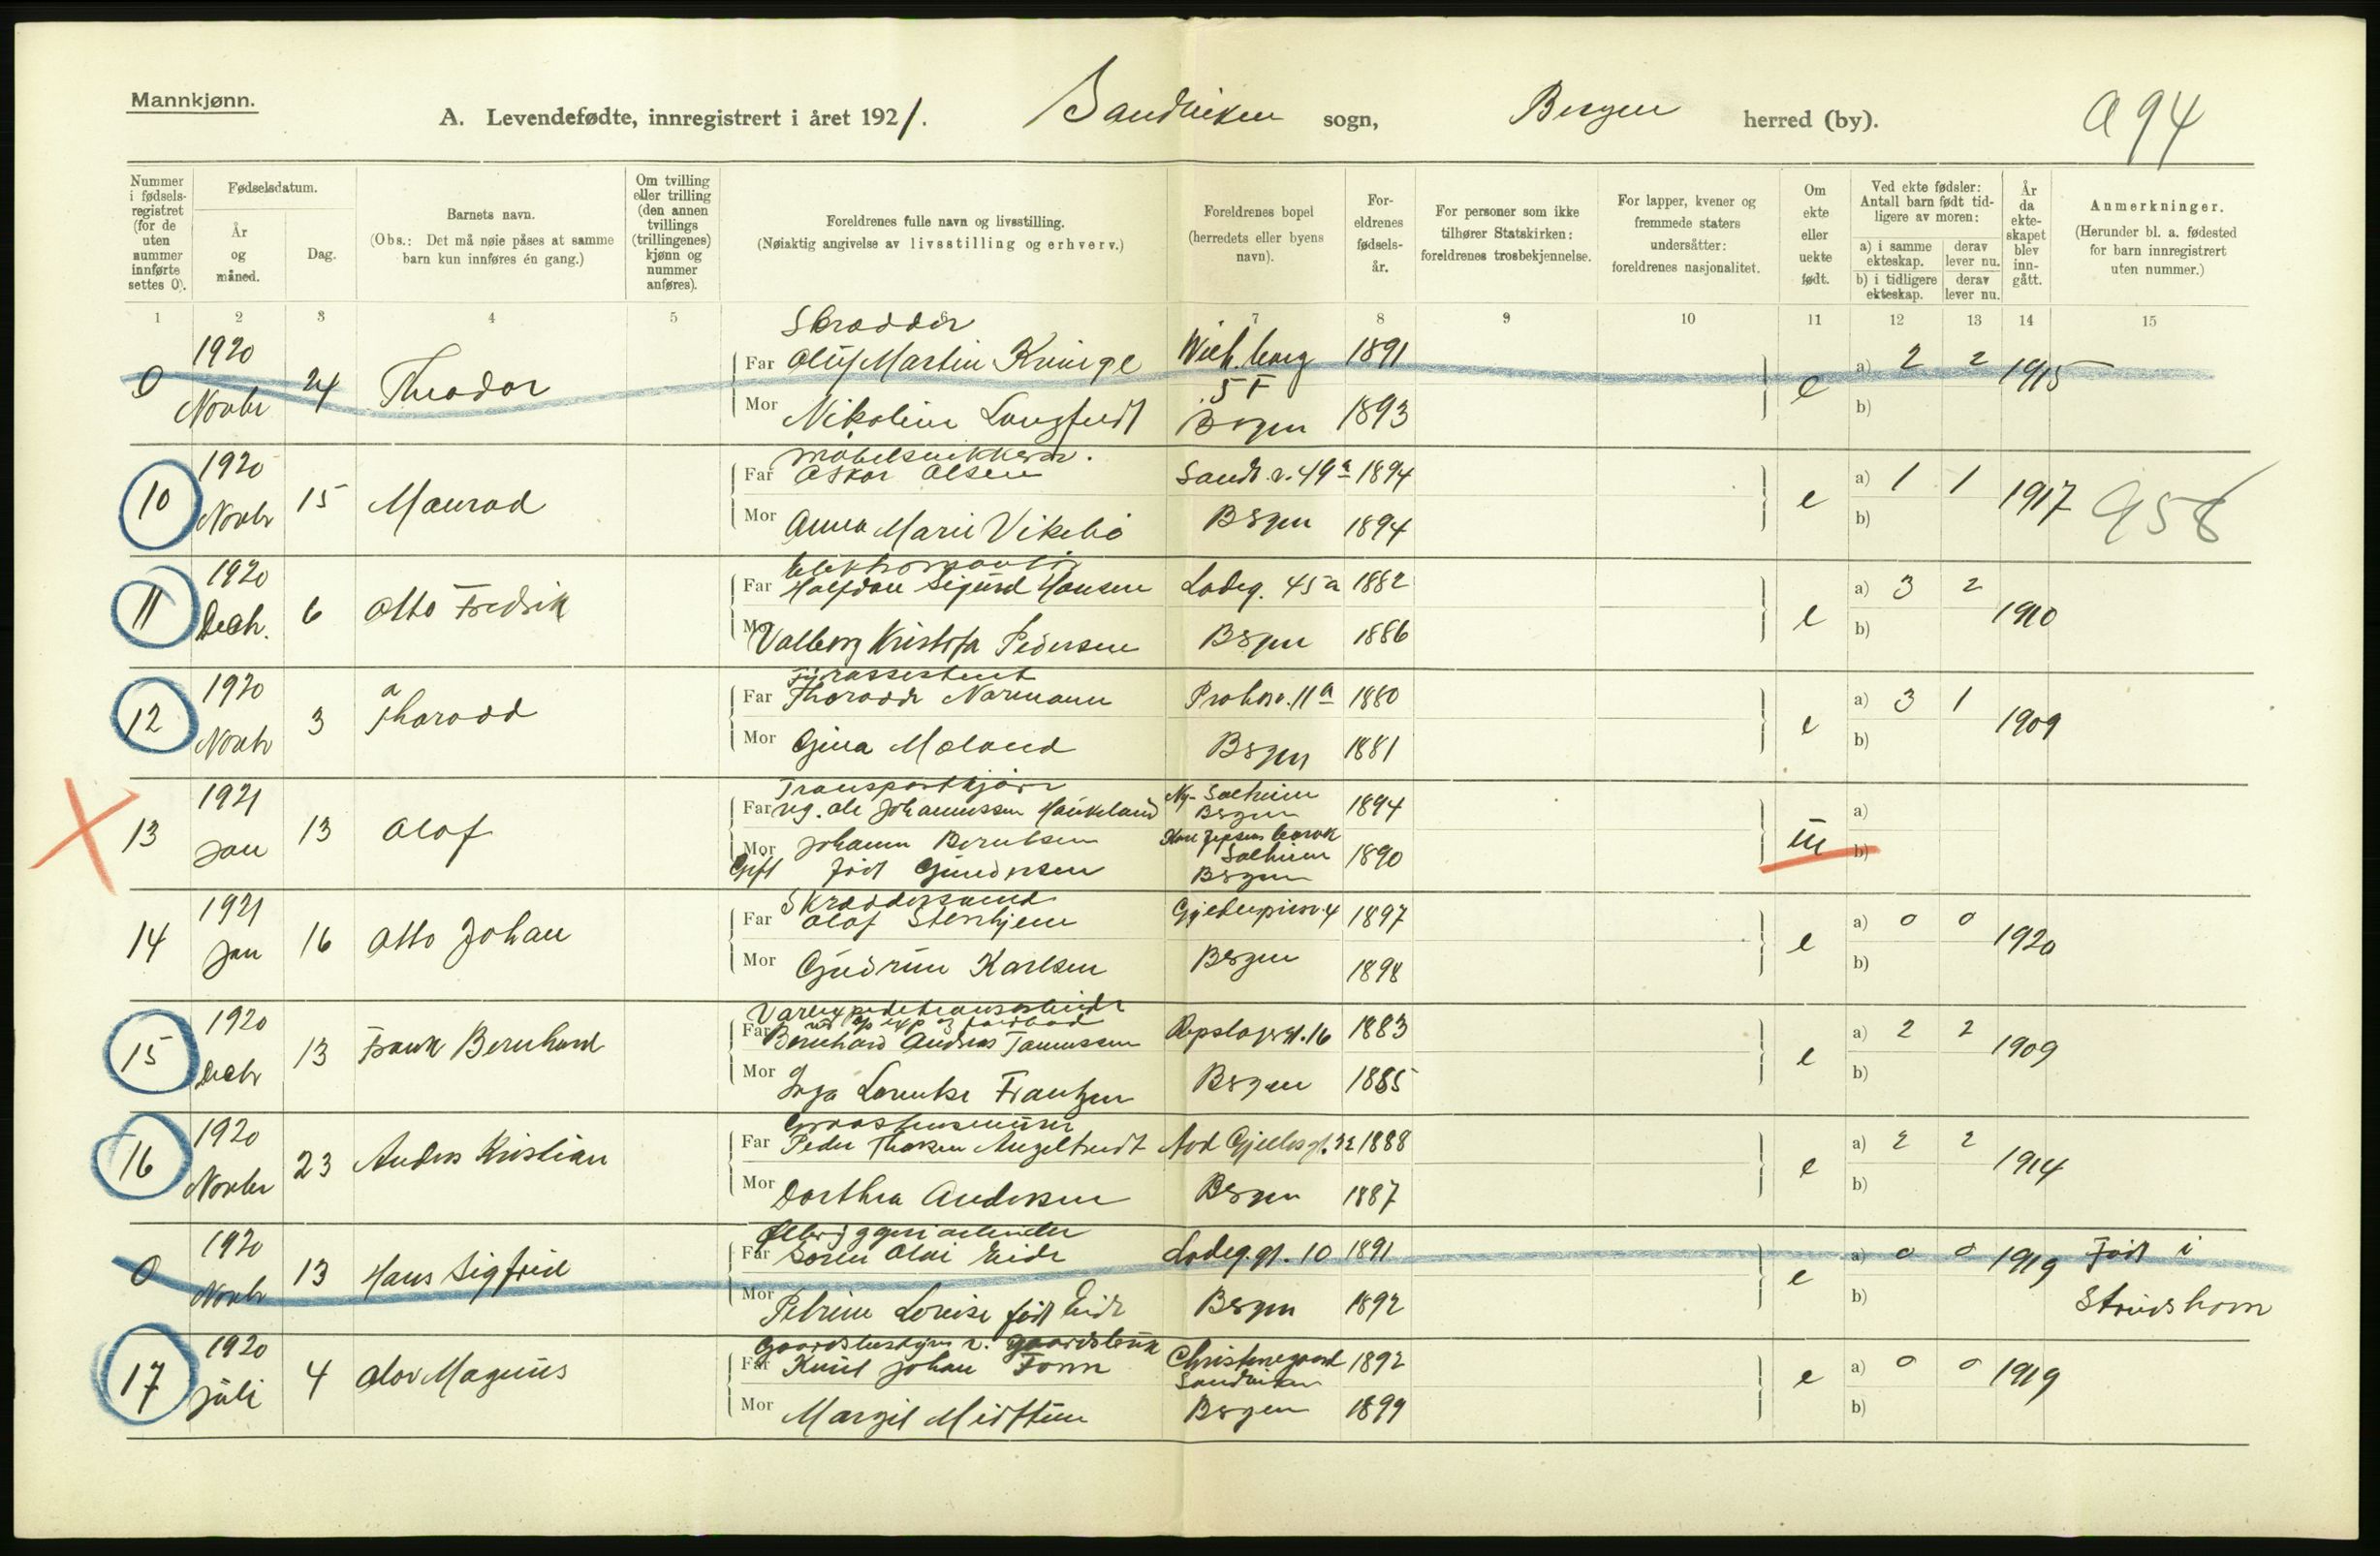 Mannkjønn.
A. Levendefødte, innregistrert i året 1921. Sandviken sogn, Bergen herred (by). a 94
Nummer i fødsels-registret (for de uten nummer innførte settes 0).
Fødselsdatum.
År og måned.
Dag.
Barnets navn.
(Obs.: Det må nøie påses at samme barn kun innføres én gang.)
Om tvilling eller trilling (den annen tvillings (trillingenes) kjønn og nummer anføres).
Foreldrenes fulle navn og livsstilling.
(Nøiaktig angivelse av livsstilling og erhverv.)
Foreldrenes bopel (herredets eller byens navn).
For-eldrenes fødsels-år.
For personer som ikke tilhører Statskirken: foreldrenes trosbekjennelse.
For lapper, kvener og fremmede staters undersåtter: foreldrenes nasjonalitet.
Om ekte eller uekte født.
Ved ekte fødsler: Antall barn født tid-ligere av moren:
a) i samme ekteskap. derav lever nu.
b) i tidligere ekteskap. derav lever nu.
År da ekte-skapet blev inn-gått.
Anmerkninger.
(Herunder bl. a. fødested for barn innregistrert uten nummer.)
1 2 3 4 5 7 8 9 10 11 12 13 14 15
Skrædder
0 1920 Novbr 24 Theodor Far Oluf Martin Kringe 1891 e a) 2 2 1915
5 F
Mor Nikoline Langfeldt Bergen 1893 b)
Møbelsnekker
10 1920 Novbr 15 Manrad Far Oskar Olsen Sandv.v. 49a 1894 e a) 1 1 1917 958
Mor Anna Marie Vikebø Bergen 1894 b)
Elektromontør
11 1920 Decb. 6 Otto Fredrik Far Halfdan Sigurd Hansen Ladeg. 45a 1882 e a) 3 2 1910
Mor Valborg Kristofa Pedersen Bergen 1886 b)
Fyrassistent
12 1920 Novbr 3 Tharodd a Far Thorodd Normann 11a 1880 e a) 3 1 1909
Mor Gina Moland Bergen 1881 b)
Transportkjører
13 1921 Jan 13 Olaf Far ug. Ole Johannessen Haukeland Ny-Solheim Bergen 1894 u a)
Mor Johanna Berntsen Solheim 1890 b)
Gift født Gundersen Bergen
Skræddersvend
14 1921 Jan 16 Otto Johan Far Olaf Stenhjem 4 1897 e a) 0 0 1920
Mor Gudrun Karlsen Bergen 1898 b)
15 1920 Decbr 13 Frank Bernhard Far Bernhard Andreas Tønnessen Repslagergt. 16 1883 e a) 2 2 1909
Mor Inga Lorentse Frantzen Bergen 1885 b)
16 1920 Novbr 23 Anders Kristian Far Peder Angeltveit Nod Gjelles gt. 32 1888 e a) 2 2 1914
Mor Dorthea Andersen Bergen 1887 b)
Ølbryggeriarbeider
0 1920 Novbr 13 Hans Sigfred Far Søren Olai Eide Ladeg.gt. 10 1891 e a) 0 0 1919 Født i
Mor Petrine Lovise født Eide Bergen 1892 b) Strudshavn
Gaardsbestyrer v. gaardsbruk
17 1920 Juli 4 Olav Magnus Far Knut Johan Fonn Christinegaard Sandviken 1892 e a) 0 0 1919
Mor Margit Midttun Bergen 1899 b)